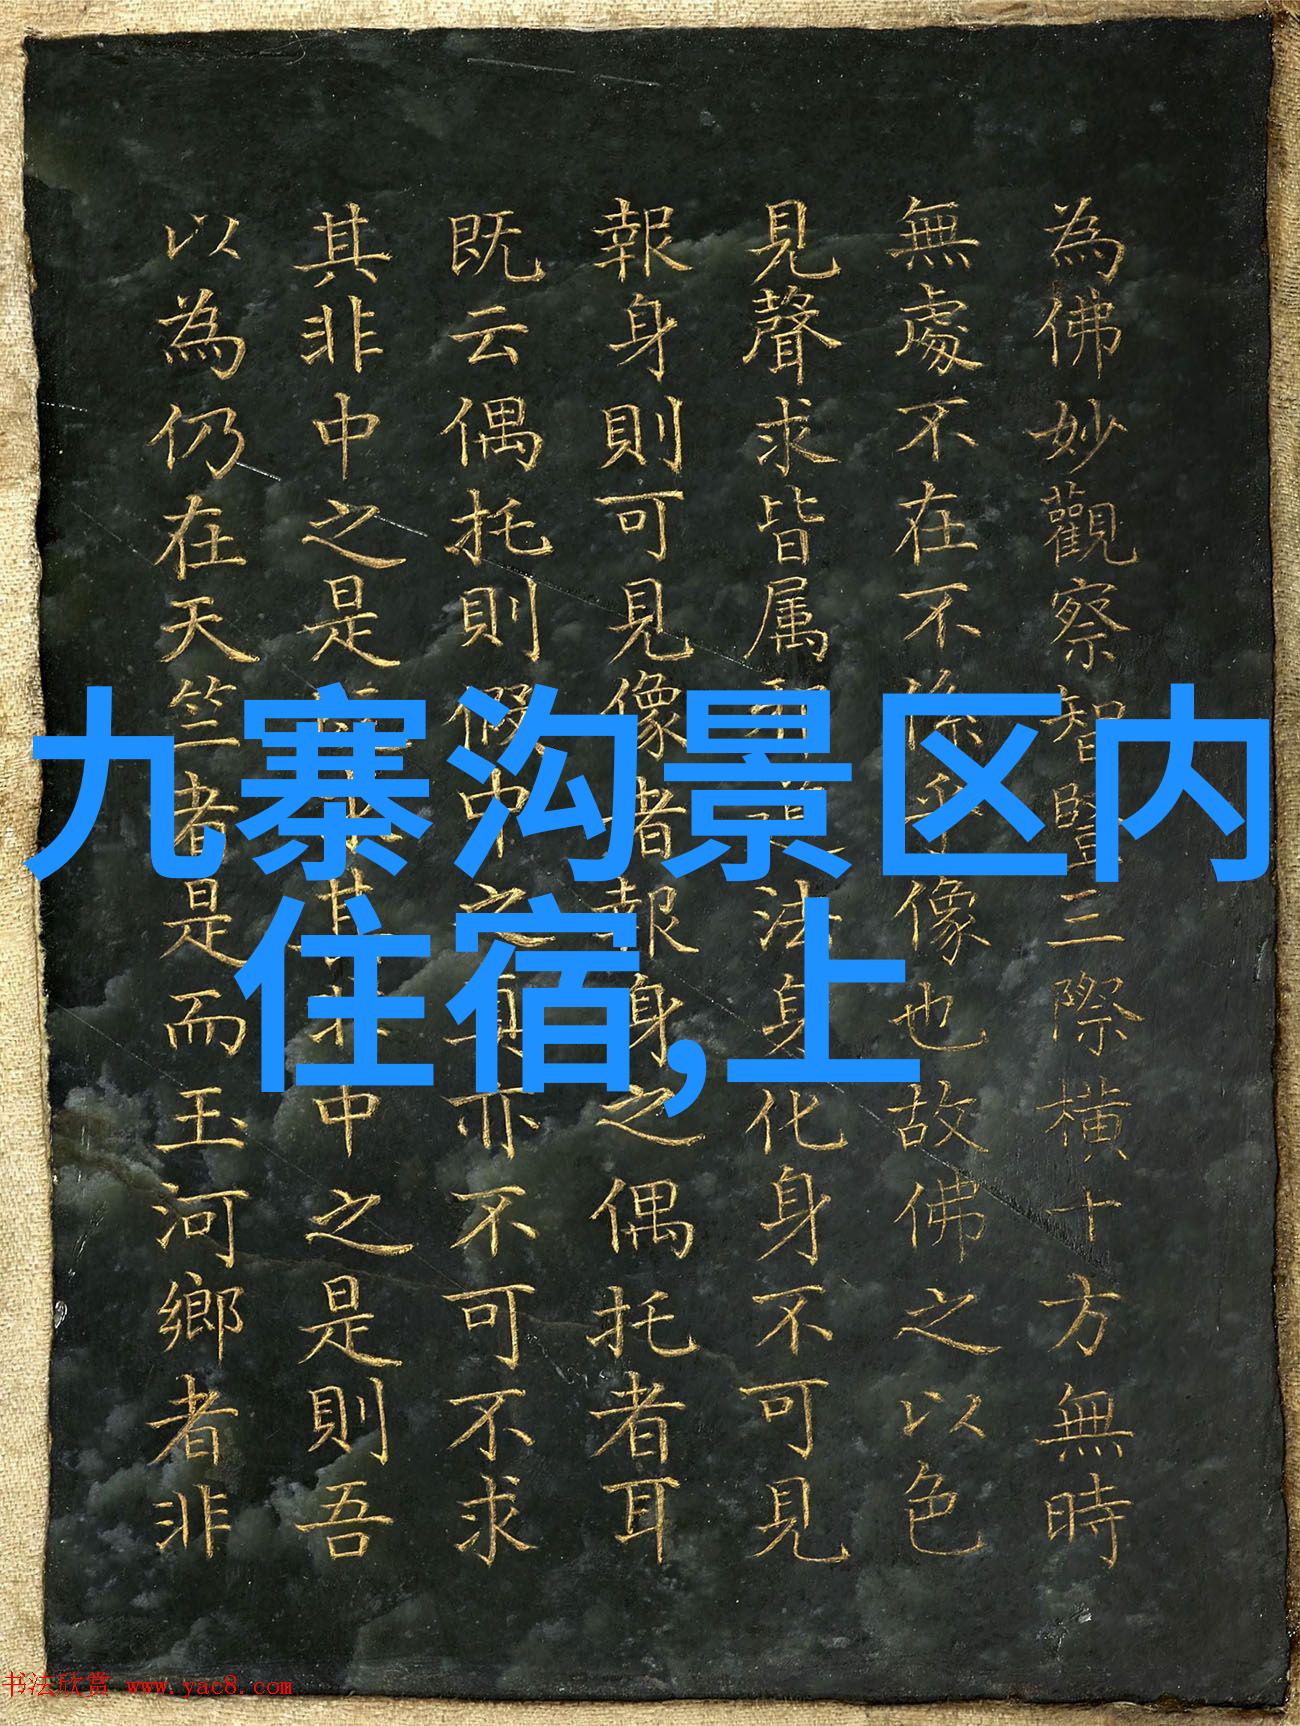 為佛妙觀察智豎三際橫十方無時
無處不在不係乎像也故佛之以色
見聲求皆属邪道法身化身不可見
報身則可見像者報身之偶托者耳
既云偶托則假中之真亦不可不求
其非中之是其非中之是則吾
以為仍在天竺者是而玉河鄉者非
九寨沟景区内
住宿,上
书法欣赏 www.yac8.com